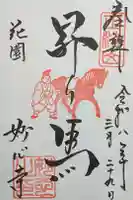 奉拝
令和八年
三月二十九日
昇り馬
花園
妙心寺